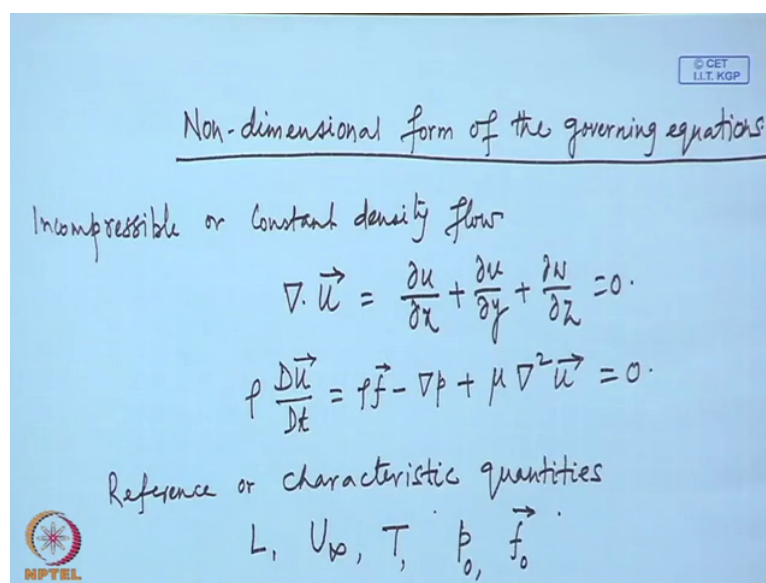 © CET
I.I.T. KGP
Non-dimensional form of the governing equations.
Incompressible or Constant density flow
∇. u⃗ = ∂u/∂x + ∂v/∂y + ∂w/∂z = 0.
ρ Du⃗/Dt = ρf⃗ - ∇p + μ ∇²u⃗ = 0.
Reference or characteristic quantities
L, U∞, T, p₀, f⃗₀
NPTEL